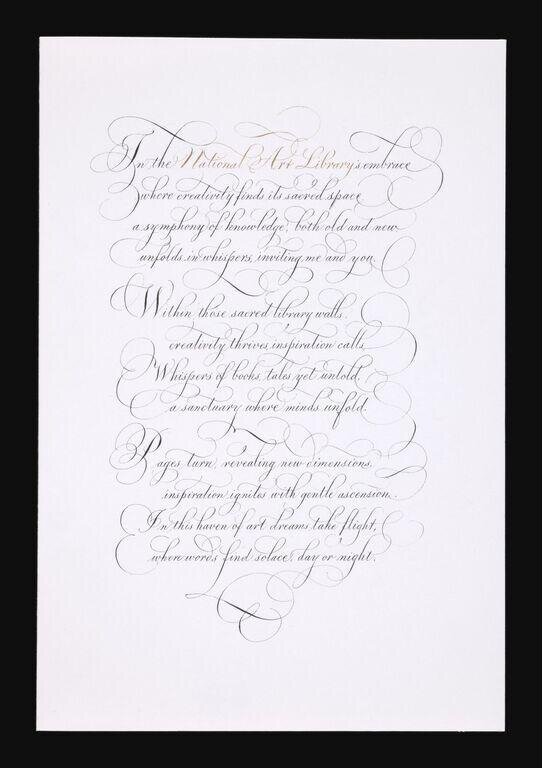 In the National Art Library's embrace
where creativity finds its sacred space
a symphony of knowledge, both old and new
unfolds in whispers, inviting me and you.
Within those sacred library walls,
creativity thrives, inspiration calls,
Whispers of books, tales yet untold,
a sanctuary where minds unfold.
Pages turn, revealing new dimensions,
inspiration ignites with gentle ascension.
In this haven of art dreams take flight,
where words find solace, day or night.